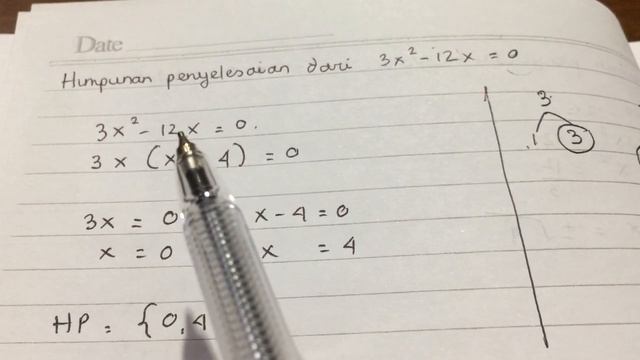 Date
Himpunan penyelesaian dari 3x² - 12x = 0
3x² - 12x = 0.
3x (x 4) = 0
3x = 0 x - 4 = 0
x = 0 x = 4
HP = {0,4
3
1 3